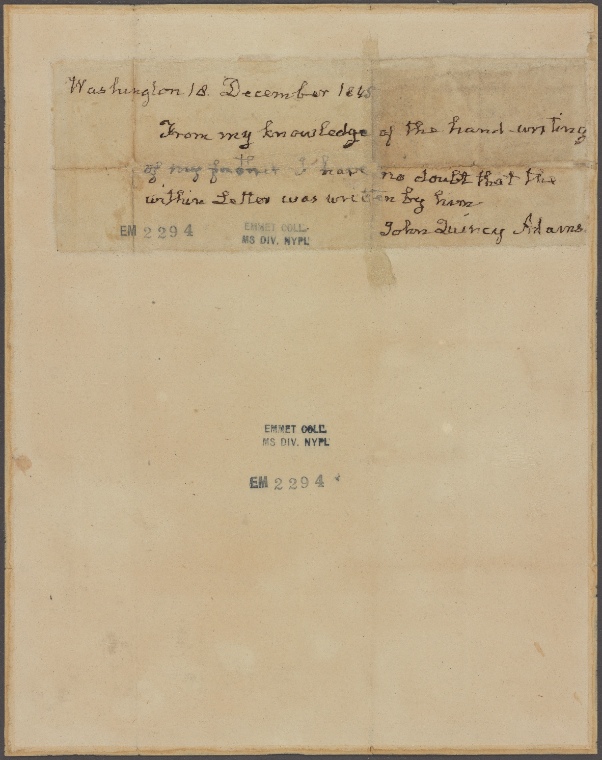 Washington 18 December 1845
From my knowledge of the hand-writing
of my father I have no doubt that the
within Letter was written by him
John Quincy Adams.
EM 2294
EMMET COLL.
MS DIV. NYPL
EMMET COLL.
MS DIV. NYPL
EM 2294